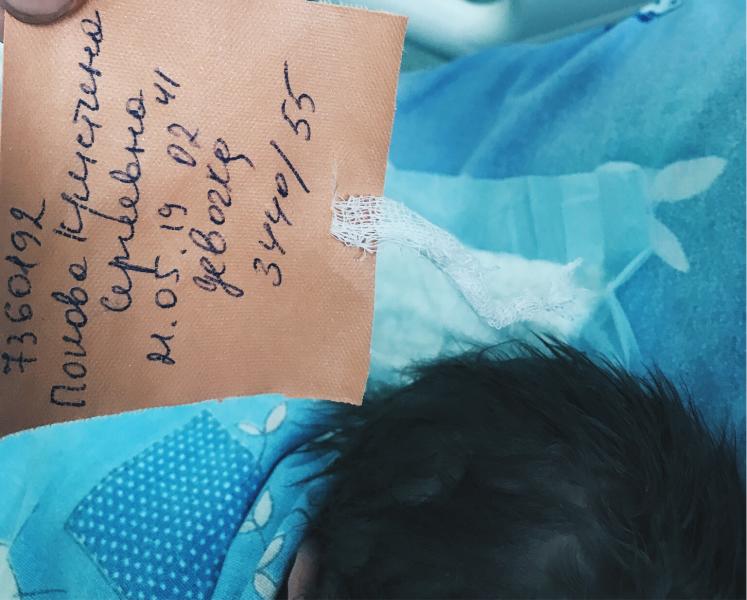 7360192
Попова Кристина
Сергеевна
21.05.19 02 41
девочка
3440/55